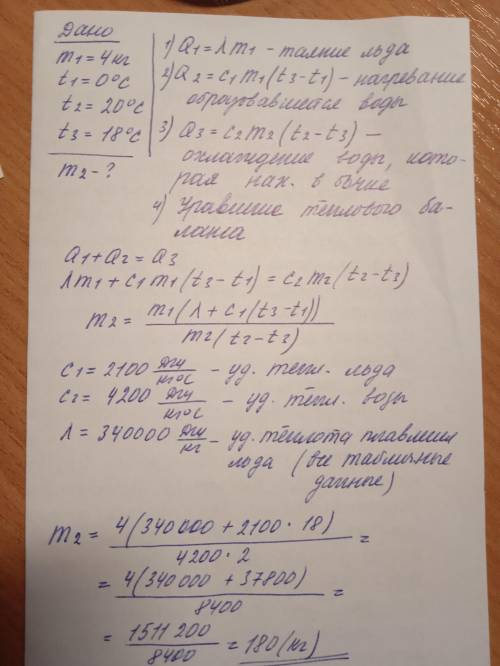 Дано
m1 = 4 кг
t1 = 0°C
t2 = 20°C
t3 = 18°C
m2 - ?
1) Q1 = λm1 - таяние льда
2) Q2 = c1m1(t3-t1) - нагревание
образовавшейся воды
3) Q3 = c2m2(t2-t3) -
охлаждение воды, кото-
рая нах. в бочке
4) Уравнение теплового ба-
ланса
Q1 + Q2 = Q3
λm1 + c1m1(t3-t1) = c2m2(t2-t3)
m2 = m1(λ + c1(t3-t1)) / m2(t2-t3)
c1 = 2100 Дж/кг°C - уд. тепл. льда
c2 = 4200 Дж/кг°C - уд. тепл. воды
λ = 340000 Дж/кг - уд. теплота плавления
льда (все табличные
данные)
m2 = 4(340000 + 2100 · 18) / 4200 · 2 =
= 4(340000 + 37800) / 8400 =
= 1511200 / 8400 = 180 (кг)